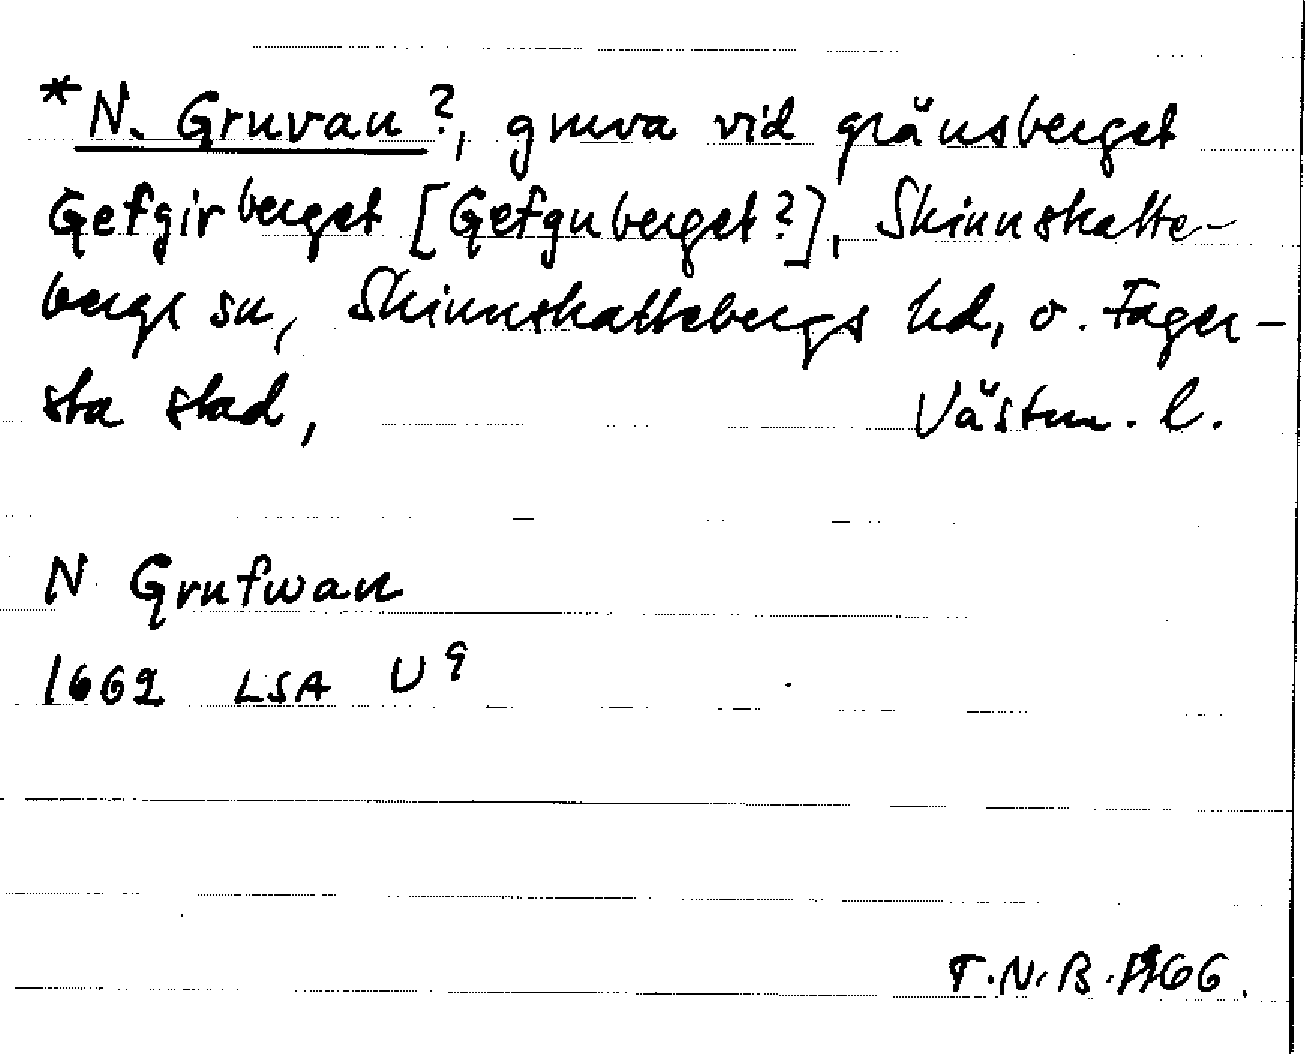 *N. Gruvan?, gruva vid gränsberget
Gefgirberget [Gefguberget?], Skinnskatte-
bergs sn, Skinnskattebergs hd, o. Fager-
sta stad, Västm. l.
N Grufwan
1662 LSA U9
T.N.B. 1966.